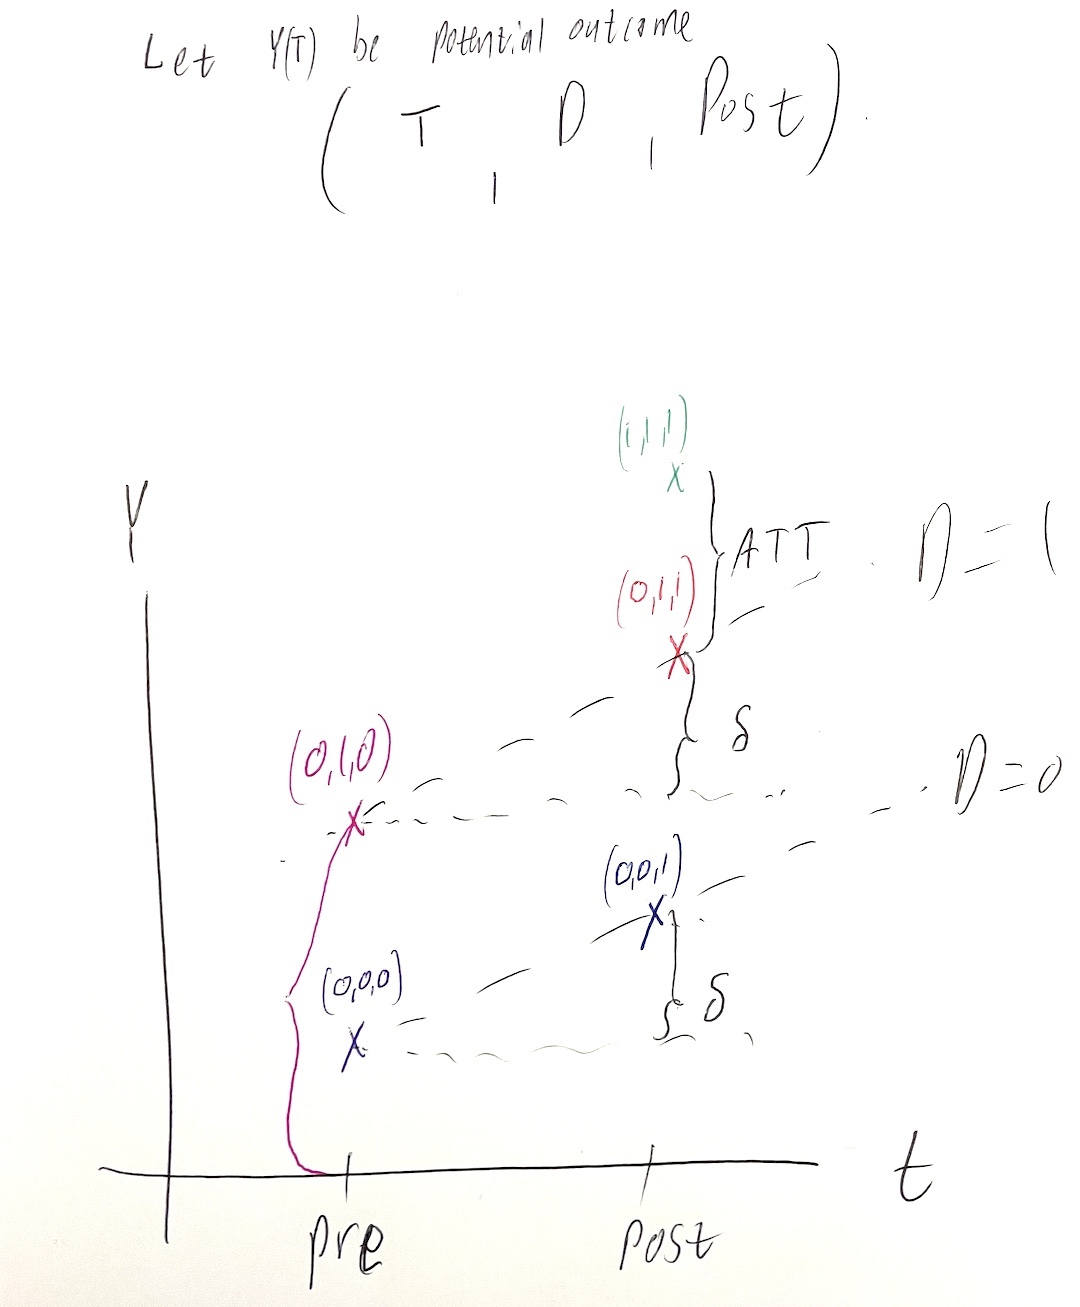 Let Y(T) be potential outcome
( T , D , Post ).
(1,1,1)
Y
ATT
D = 1
(0,1,1)
(0,1,0)
δ
D = 0
(0,0,1)
(0,0,0)
δ
t
pre
post